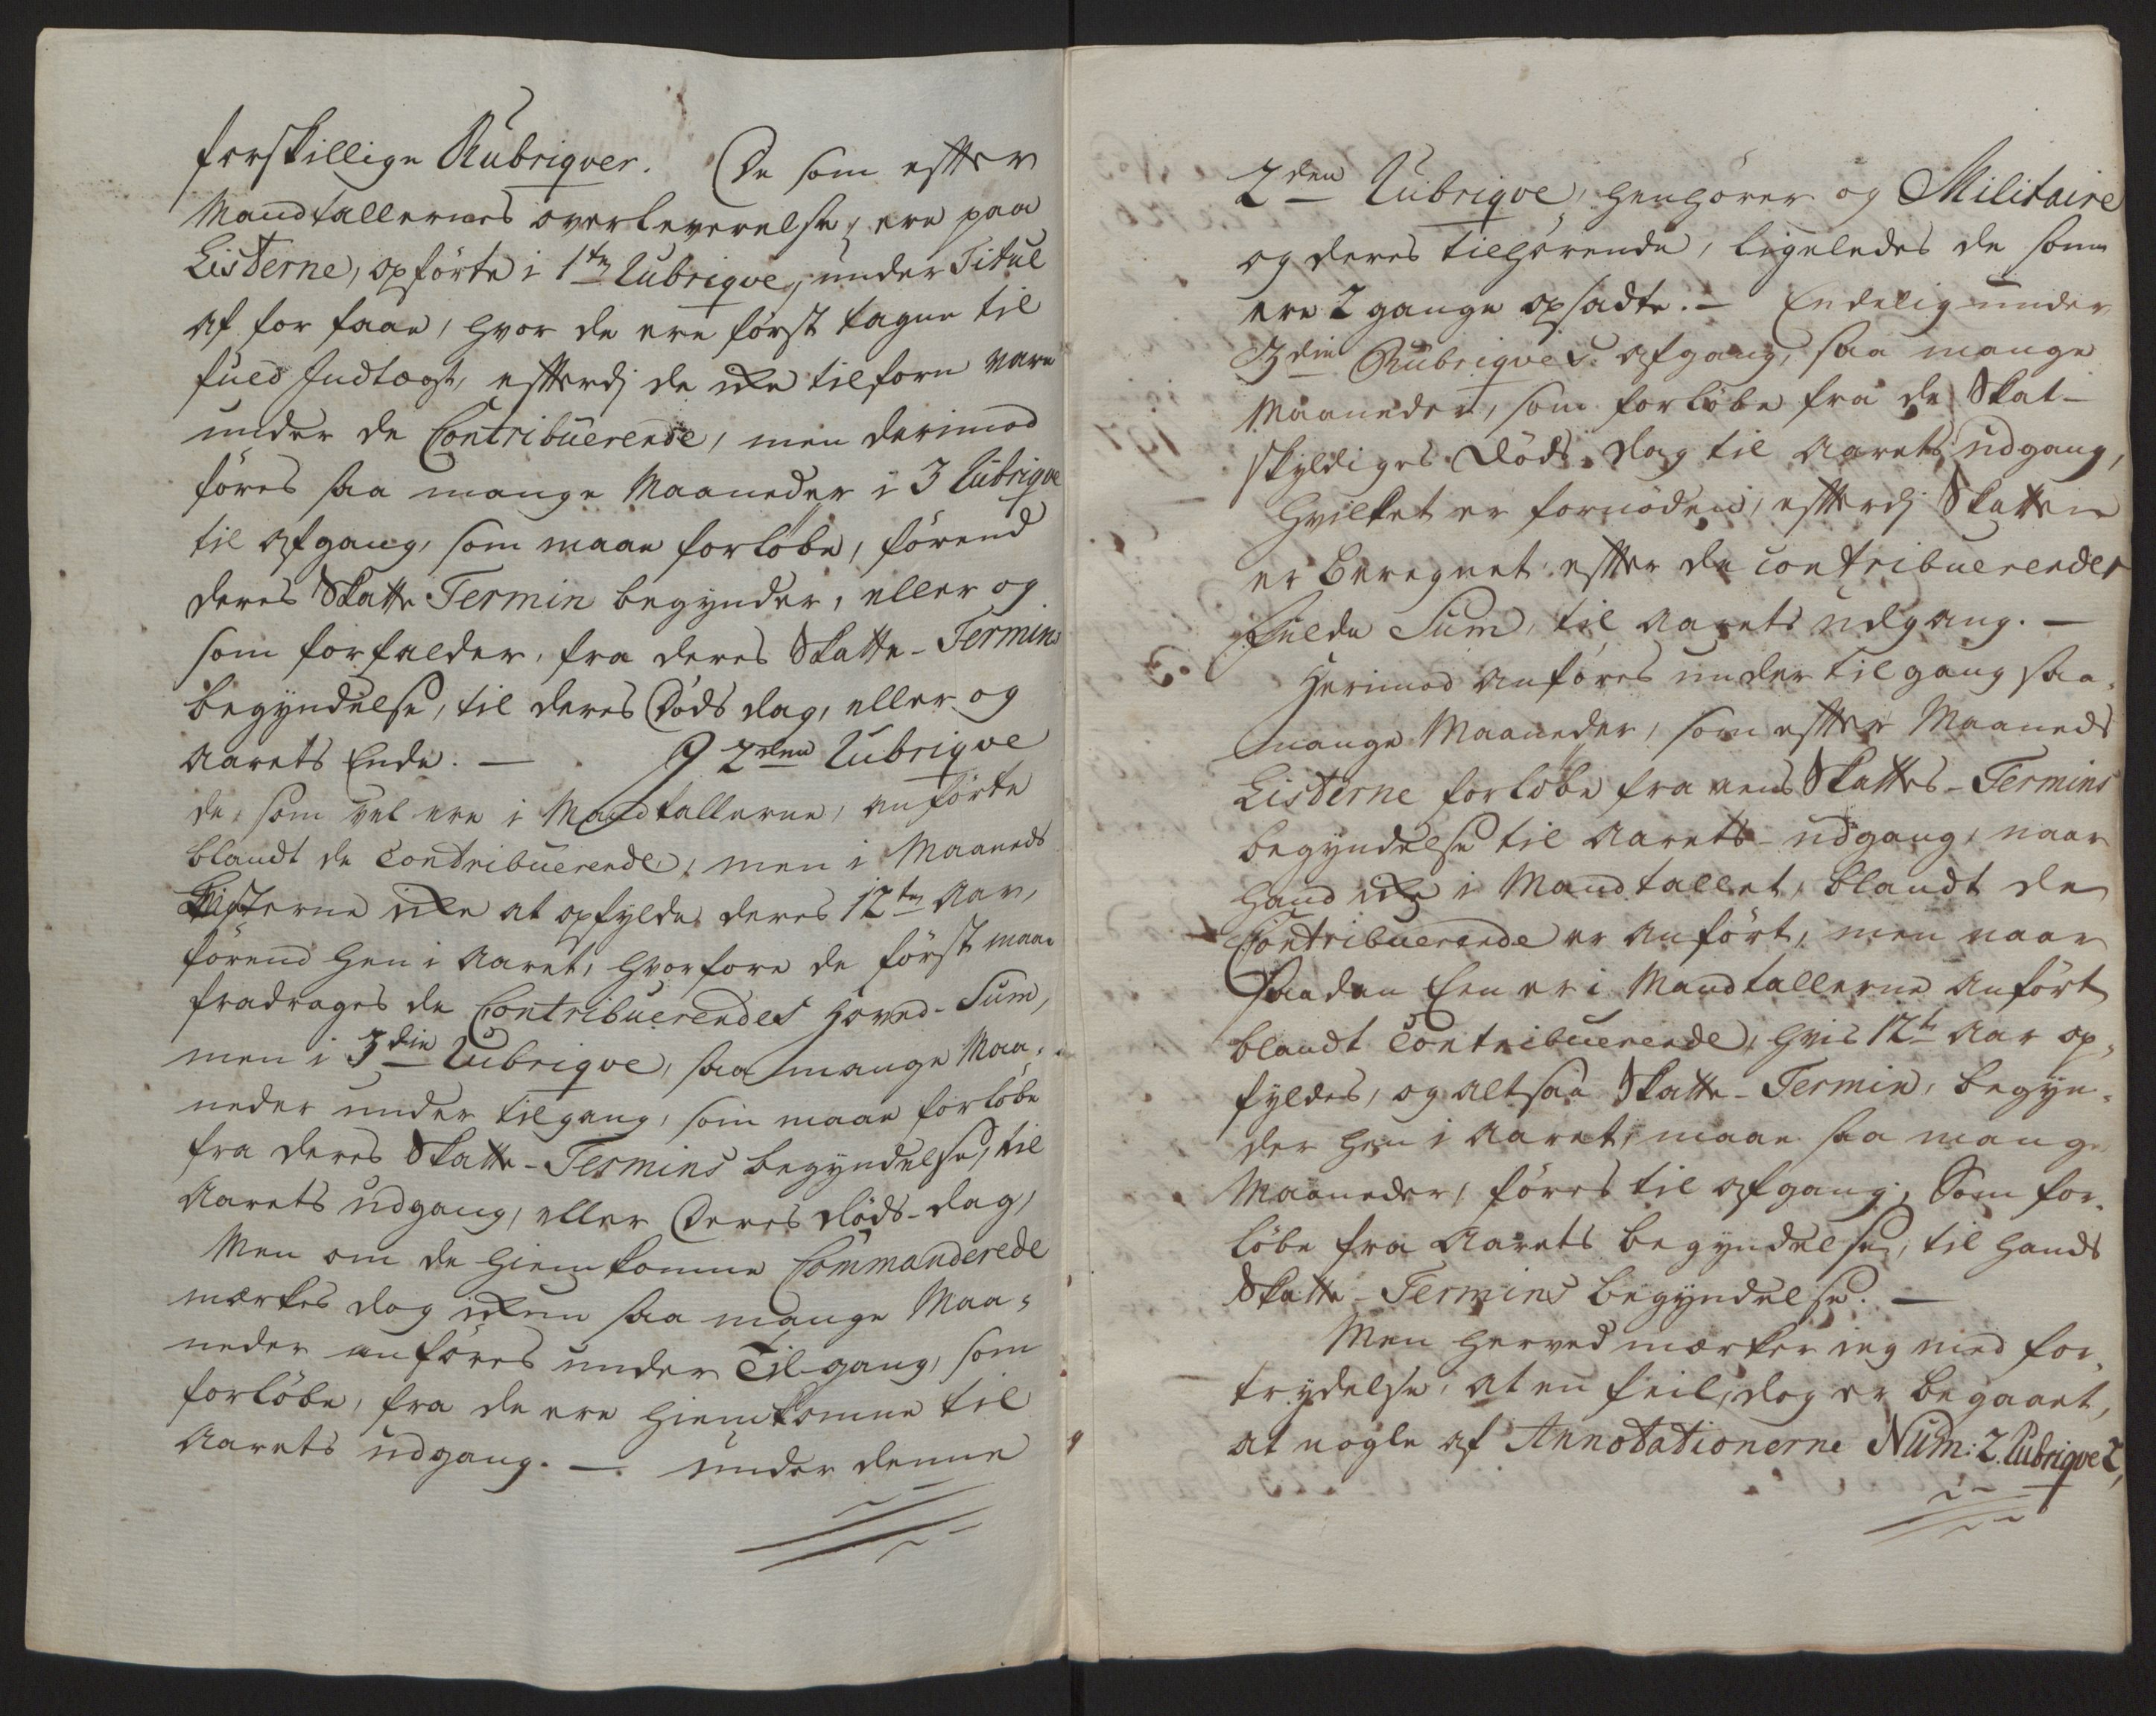 forskillige Rubriqver. De som efter
Mandtallernes overleverelse, ere paa
Listerne, opförte i 1te Rubriqve, under Titul
af for faae, hvor de ere först tagne til
fuld Indtægt, efterdj de ikke tilforn vare
under de Contribuerende, men derimod
föres saa mange Maaneder i 3 Rubriqve
til afgang, som maae forlöbe, förend
deres Skatte Termin begynder, eller og
som forfalder, fra deres Skatte-Termins
begyndelse, til deres Döds dag, eller og
Aarets Ende. — I 2den Rubriqve
de, som vel ere i Mandtallerne, anförte
blandt de Contribuerende, men i Maaneds
Listerne ikke at opfylde deres 12te Aar,
förend hen i Aaret, hvorfore de först maae
fradrages de Contribuerendes Hoved-Sum,
men i 3die Rubriqve, saa mange Maa-
neder under tilgang, som maae forlöbe
fra deres Skatte-Termins begyndelse, til
Aarets udgang, eller Deres döds-dag,
Men om de hiemkomne Commanderede
mærkes dog ikkun saa mange Maa-
neder anföres under Tilgang, som
forlöbe, fra de ere hiemkomne til
Aarets udgang. — under denne
2den Rubriqve, henhörer og Militaire
og deres tilhörende, ligeledes de som
ere 2 gange opsadte. — Endelig under
3die Rubriqves afgang, saa mange
Maaneder, som forlöbe fra de Skat-
skyldiges Döds Dag til Aarets udgang,
hvilket er fornöden, efterdj Skatten
er beregnet efter de contribuerendes
fulde Sum, til Aarets udgang. —
Herimod anföres under tilgang saa
mange Maaneder, som efter Maaneds
Listerne forlöbe fra eens Skattes-Termins
begyndelse til Aarets udgang, naar
hand ikke i Mandtallet, blandt de
Contribuerende er anfört, men naar
saadan Een er i Mandtallerne anfört
blandt Contribuerende, hvis 12te Aar op-
fyldes, og altsaa Skatte-Termin, begyn-
der hen i Aaret, maae saa mange
Maaneder, föres til afgang, Som for-
löbe fra Aarets begyndelse, til hands
Skatte-Termins begyndelse. —
Men herved mærker ieg med for-
trydelse, at en feil dog er begaaet,
at nogle af Annotationerne Num: 2. Rubriqve 2,